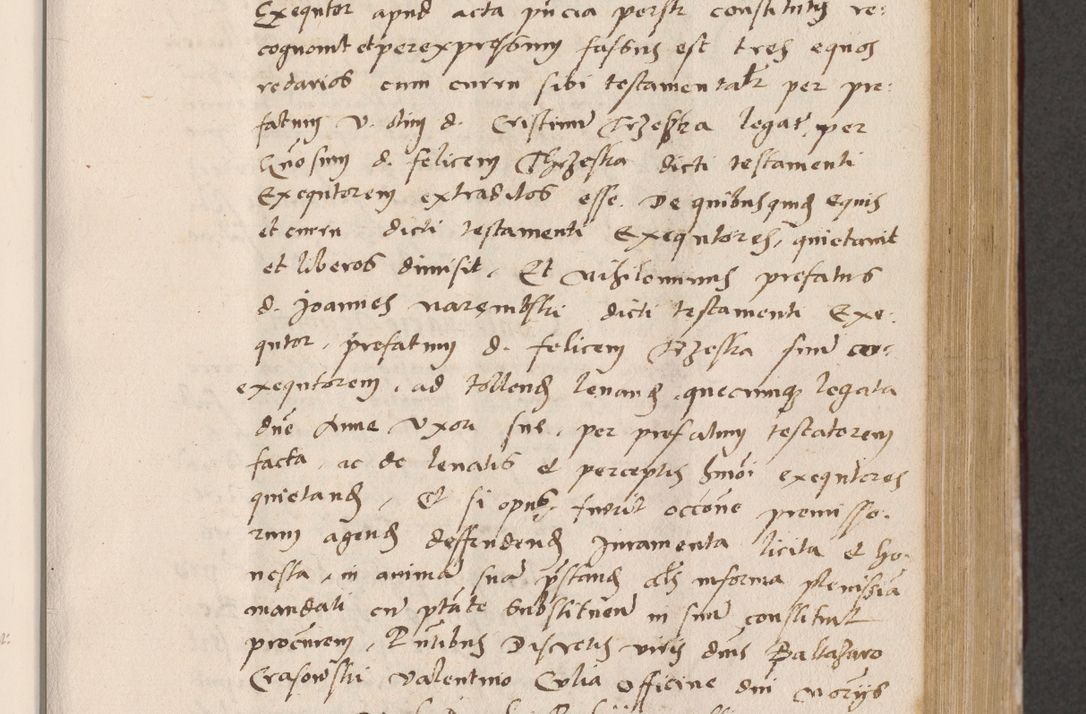 Exequtor apud acta pñcia perst constitutus re:
cognovit et per expressum fassus est tres equos
redarios cum curru sibi testamentalr per pre:
fatum v. olim d. Cristinum Trzeska legat, per
Gnosum d. felicem Thrzeska dicti testamenti
Exequtorem extraditos esse. De quibusquid equis
et curru dicti testamenti Exequtores, quietavit
et liberos dimisit. Et nihilominus prefatus
d. Joannes Narembski dicti testamenti Exe:
qutor, prefatum d. felicem Trzeska suum
exequtorem, ad tollend levand, quecumque legata
dne Anne Uxori sue, per prefatum testatorem
facta, ac de levatis et perceptis hmoi exequtores
quietand, Et si opus fuerit occone premisso:
rum agend deffendend Juramenta licita et ho:
nesta, in anima sua pstand als informa plenissia
mandati cum ptate substituen in suum constituit
procurem, Pntibus Discretis viris dnis Baltazaro
Crasowski Valentino Culia officine dni Notrijs